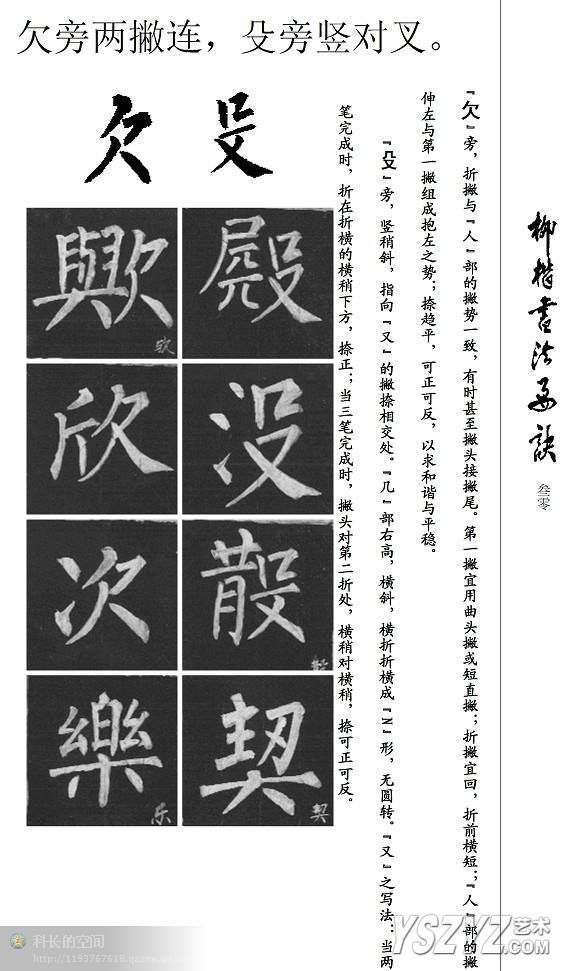 欠旁两撇连，殳旁竖对叉。
欠 殳
『欠』旁，折撇与『人』部的撇势一致，有时甚至撇头接撇尾。第一撇宜用曲头撇或短直撇；折撇宜回，折前横短；『人』部的撇
伸左与第一撇组成抱左之势；捺趋平，可正可反，以求和谐与平稳。
『殳』旁，竖稍斜，指向『又』的撇捺相交处。『几』部右高，横斜，横折折横成『N』形，无圆转。『又』之写法：当两
笔完成时，折在折横的横稍下方，捺正；当三笔完成时，撇头对第二折处，横稍对横稍，捺可正可反。
柳楷书法要诀
叁零
歟 殿
欤
欣 没
次 
樂 契
乐 契
YSZYZ艺术
.com
科长的空间